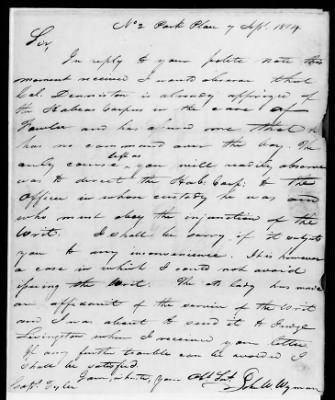 No 2 Park Place 7 Sept. 1814
Sir,
In reply to your polite note this
moment received I would observe that
Col. Denniston is already apprized of
the Habeas Corpus in the case of
Fowler and has assured me that he
has no command over the boy. The
only course left us you will readily observe
was to direct the Hab. Corp: to the
Officer in whose custody he was and
who must obey the injunction of the
Writ. I shall be sorry if it subjects
you to any inconvenience. It is however
a case in which I could not avoid
issuing the Writ. The old lady has made
an affidavit of the service of the Writ
and I was about to send it to Judge
Livingston when I received your letter
If any further trouble can be avoided I
shall be satisfied.
I am, Your Obt Svt
John W. Wyman
Capt. Tyler